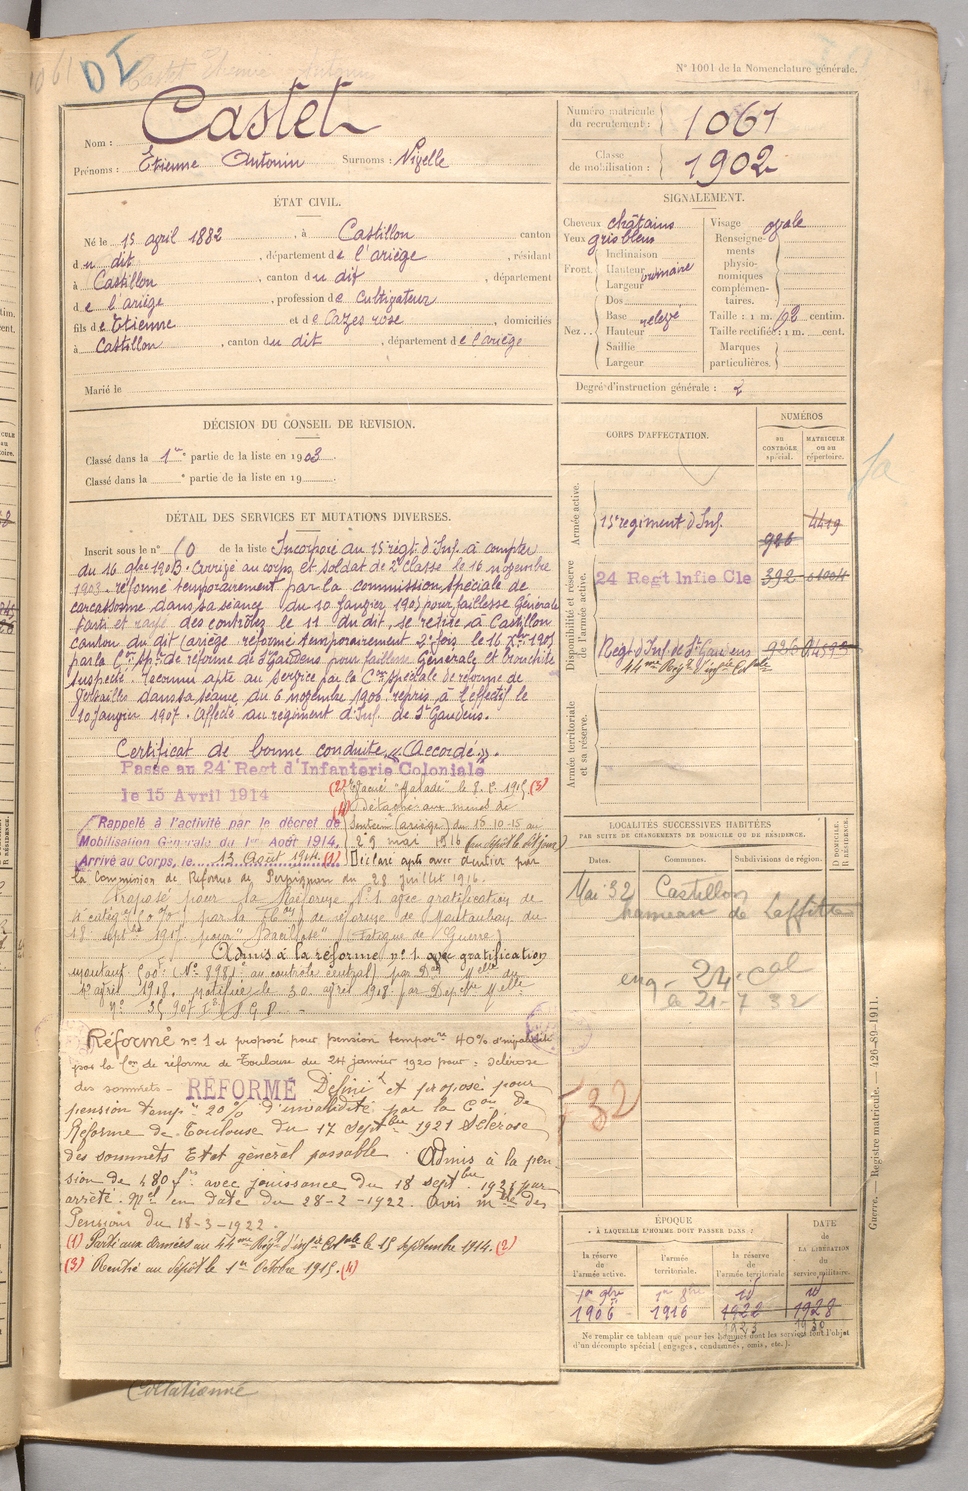 N° 1001 de la Nomenclature générale.
Nom : Castet
Prénoms : Etienne Antonin Surnoms : Vizelle
Numéro matricule du recrutement : 1061
Classe de mobilisation : 1902
ÉTAT CIVIL.
Né le 15 avril 1882, à Castillon canton
du dit, département de l'ariège, résidant
à Castillon, canton du dit, département
de l'ariège, profession de cultivateur
fils de Etienne et de Cazes rose, domiciliés
à Castillon, canton du dit, département de l'ariège
Marié le
SIGNALEMENT.
Cheveux châtains
Yeux gris bleus
Front. Inclinaison
Hauteur ordinaire
Largeur
Nez. Dos
Base relevé
Hauteur
Saillie
Largeur
Visage ovale
Renseignements physionomiques complémentaires.
Taille : 1 m. 62 centim.
Taille rectifiée : 1 m. cent.
Marques particulières.
Degré d'instruction générale : 2
DÉCISION DU CONSEIL DE REVISION.
Classé dans la 1re partie de la liste en 1903
Classé dans la e partie de la liste en 19
DÉTAIL DES SERVICES ET MUTATIONS DIVERSES.
Inscrit sous le n° 10 de la liste Incorporé au 15e régt d'Inf. à compter
du 16 9bre 1903. Arrivé au corps et soldat de 2e classe le 16 novembre
1903. réformé temporairement par la commission spéciale de
carcassonne dans sa séance du 10 Janvier 1905 pour faiblesse Générale
Parti et rayé des contrôles le 11 du dit, se retire à Castillon
canton du dit (ariège. réformé temporairement 2e fois le 16 Xbre 1905
par la Con Sple de réforme de St Gaudens pour faiblesse Générale et bronchite
suspecte. Reconnu apte au service par la Con spéciale de réforme de
Versailles dans sa séance du 6 novembre 1906 repris à l'effectif le
10 Janvier 1907. Affecté au régiment d'Inf. de St Gaudens.
Certificat de bonne conduite « Accordé ».
Passé au 24 Regt d'Infanterie Coloniale
le 15 Avril 1914
Rappelé à l'activité par le décret de
Mobilisation Générale du 1er Août 1914.
Arrivé au Corps, le 12 Août 1914. (1)
(2) Evacué "Malade" le 8. 1915 (3)
(4) Détaché aux mines de
Sentein (ariège) du 15-10-15 au
29 mai 1916
Déclaré apte avec dentier par
la Commission de Réforme de Perpignan du 28 juillet 1916.
Proposé pour la Réforme N° 1 avec gratification de
par la Con de réforme de Montauban du
18 septbre 1917 pour "Bacillose" (Fatigue de Guerre)
Admis à la réforme n° 1 avec gratification
(N° 8981 au contrôle central) par
avril 1918. notifiée le 30 avril 1918
Réformé n° 1 et proposé pour pension temporre 40% d'invalidité
par la Con de réforme de Toulouse du 24 janvier 1920 pour : sclérose
des sommets - RÉFORMÉ Défini et proposé pour
pension temp. 20% d'invalidité par la Con de
Réforme de Toulouse du 17 Septbre 1921 Sclérose
des sommets Etat général passable. Admis à la pen-
sion de 480 f. avec jouissance du 18 septbre 1921 par
arrêté Mel en date du 28-2-1922. Avis des
Pensions du 18-3-1922.
(1) Parti aux Armées au 44me Régt d'inf. Cole le 15 Septembre 1914. (2)
(3) Rentré au dépôt le 1er Octobre 1915. (4)
Collationné
CORPS D'AFFECTATION.
NUMÉROS
au contrôle spécial.
matricule ou au répertoire.
Armée active.
15e régiment d'Inf. 926 4419
Disponibilité et réserve de l'armée active.
24 Regt Infie Cle 392
Regt d'Inf. de St Gaudens 926
44me Régt d'Infie Cole
Armée territoriale et sa réserve.
LOCALITÉS SUCCESSIVES HABITÉES
PAR SUITE DE CHANGEMENTS DE DOMICILE OU DE RÉSIDENCE.
Dates. Communes. Subdivisions de région. D DOMICILE. R RÉSIDENCE.
Mai 32 Castillon
hameau de Laffitte
24e Cal
21-7 32
F 32
ÉPOQUE
À LAQUELLE L'HOMME DOIT PASSER DANS :
la réserve de l'armée active. l'armée territoriale. la réserve de l'armée territoriale
DATE DE LA LIBÉRATION du service militaire.
1906 1916 1922 1928
1923 1930
Ne remplir ce tableau que pour les hommes dont les services font l'objet
d'un décompte spécial (engagés, condamnés, omis, etc.).
Guerre. — Registre matricule. — 426-89-1911.